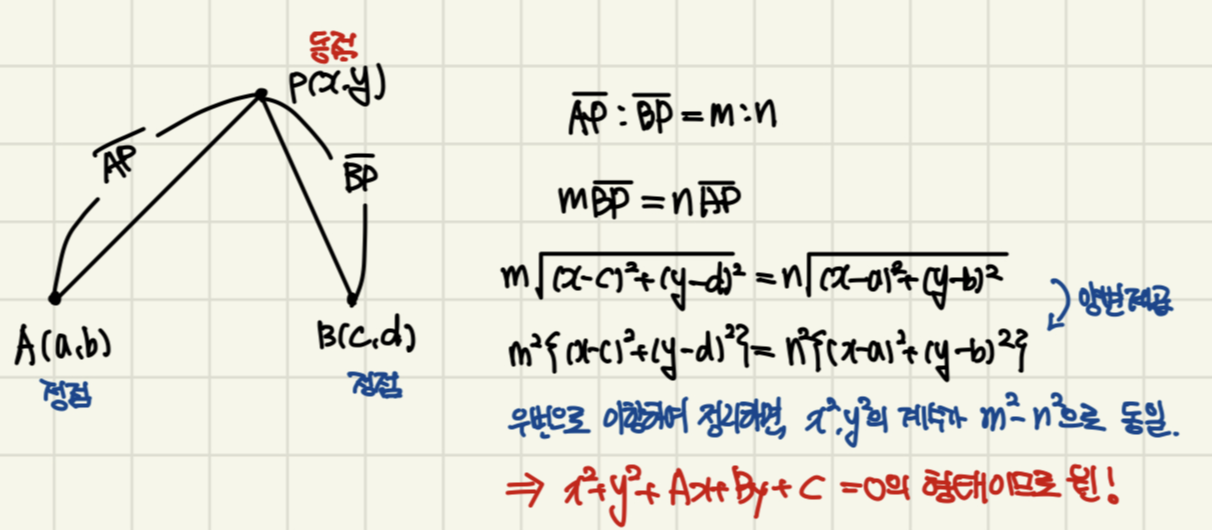 동점
P(x,y)
A̅P̅
B̅P̅
A(a,b)
정점
B(c,d)
정점
A̅P̅ : B̅P̅ = m : n
mB̅P̅ = nA̅P̅
m√(x-c)²+(y-d)² = n√(x-a)²+(y-b)²
양변제곱
m²{(x-c)²+(y-d)²} = n²{(x-a)²+(y-b)²}
우변으로 이항하여 정리하면, x²,y²의 계수가 m²-n²으로 동일.
⇒ x²+y²+Ax+By+C=0의 형태이므로 원!